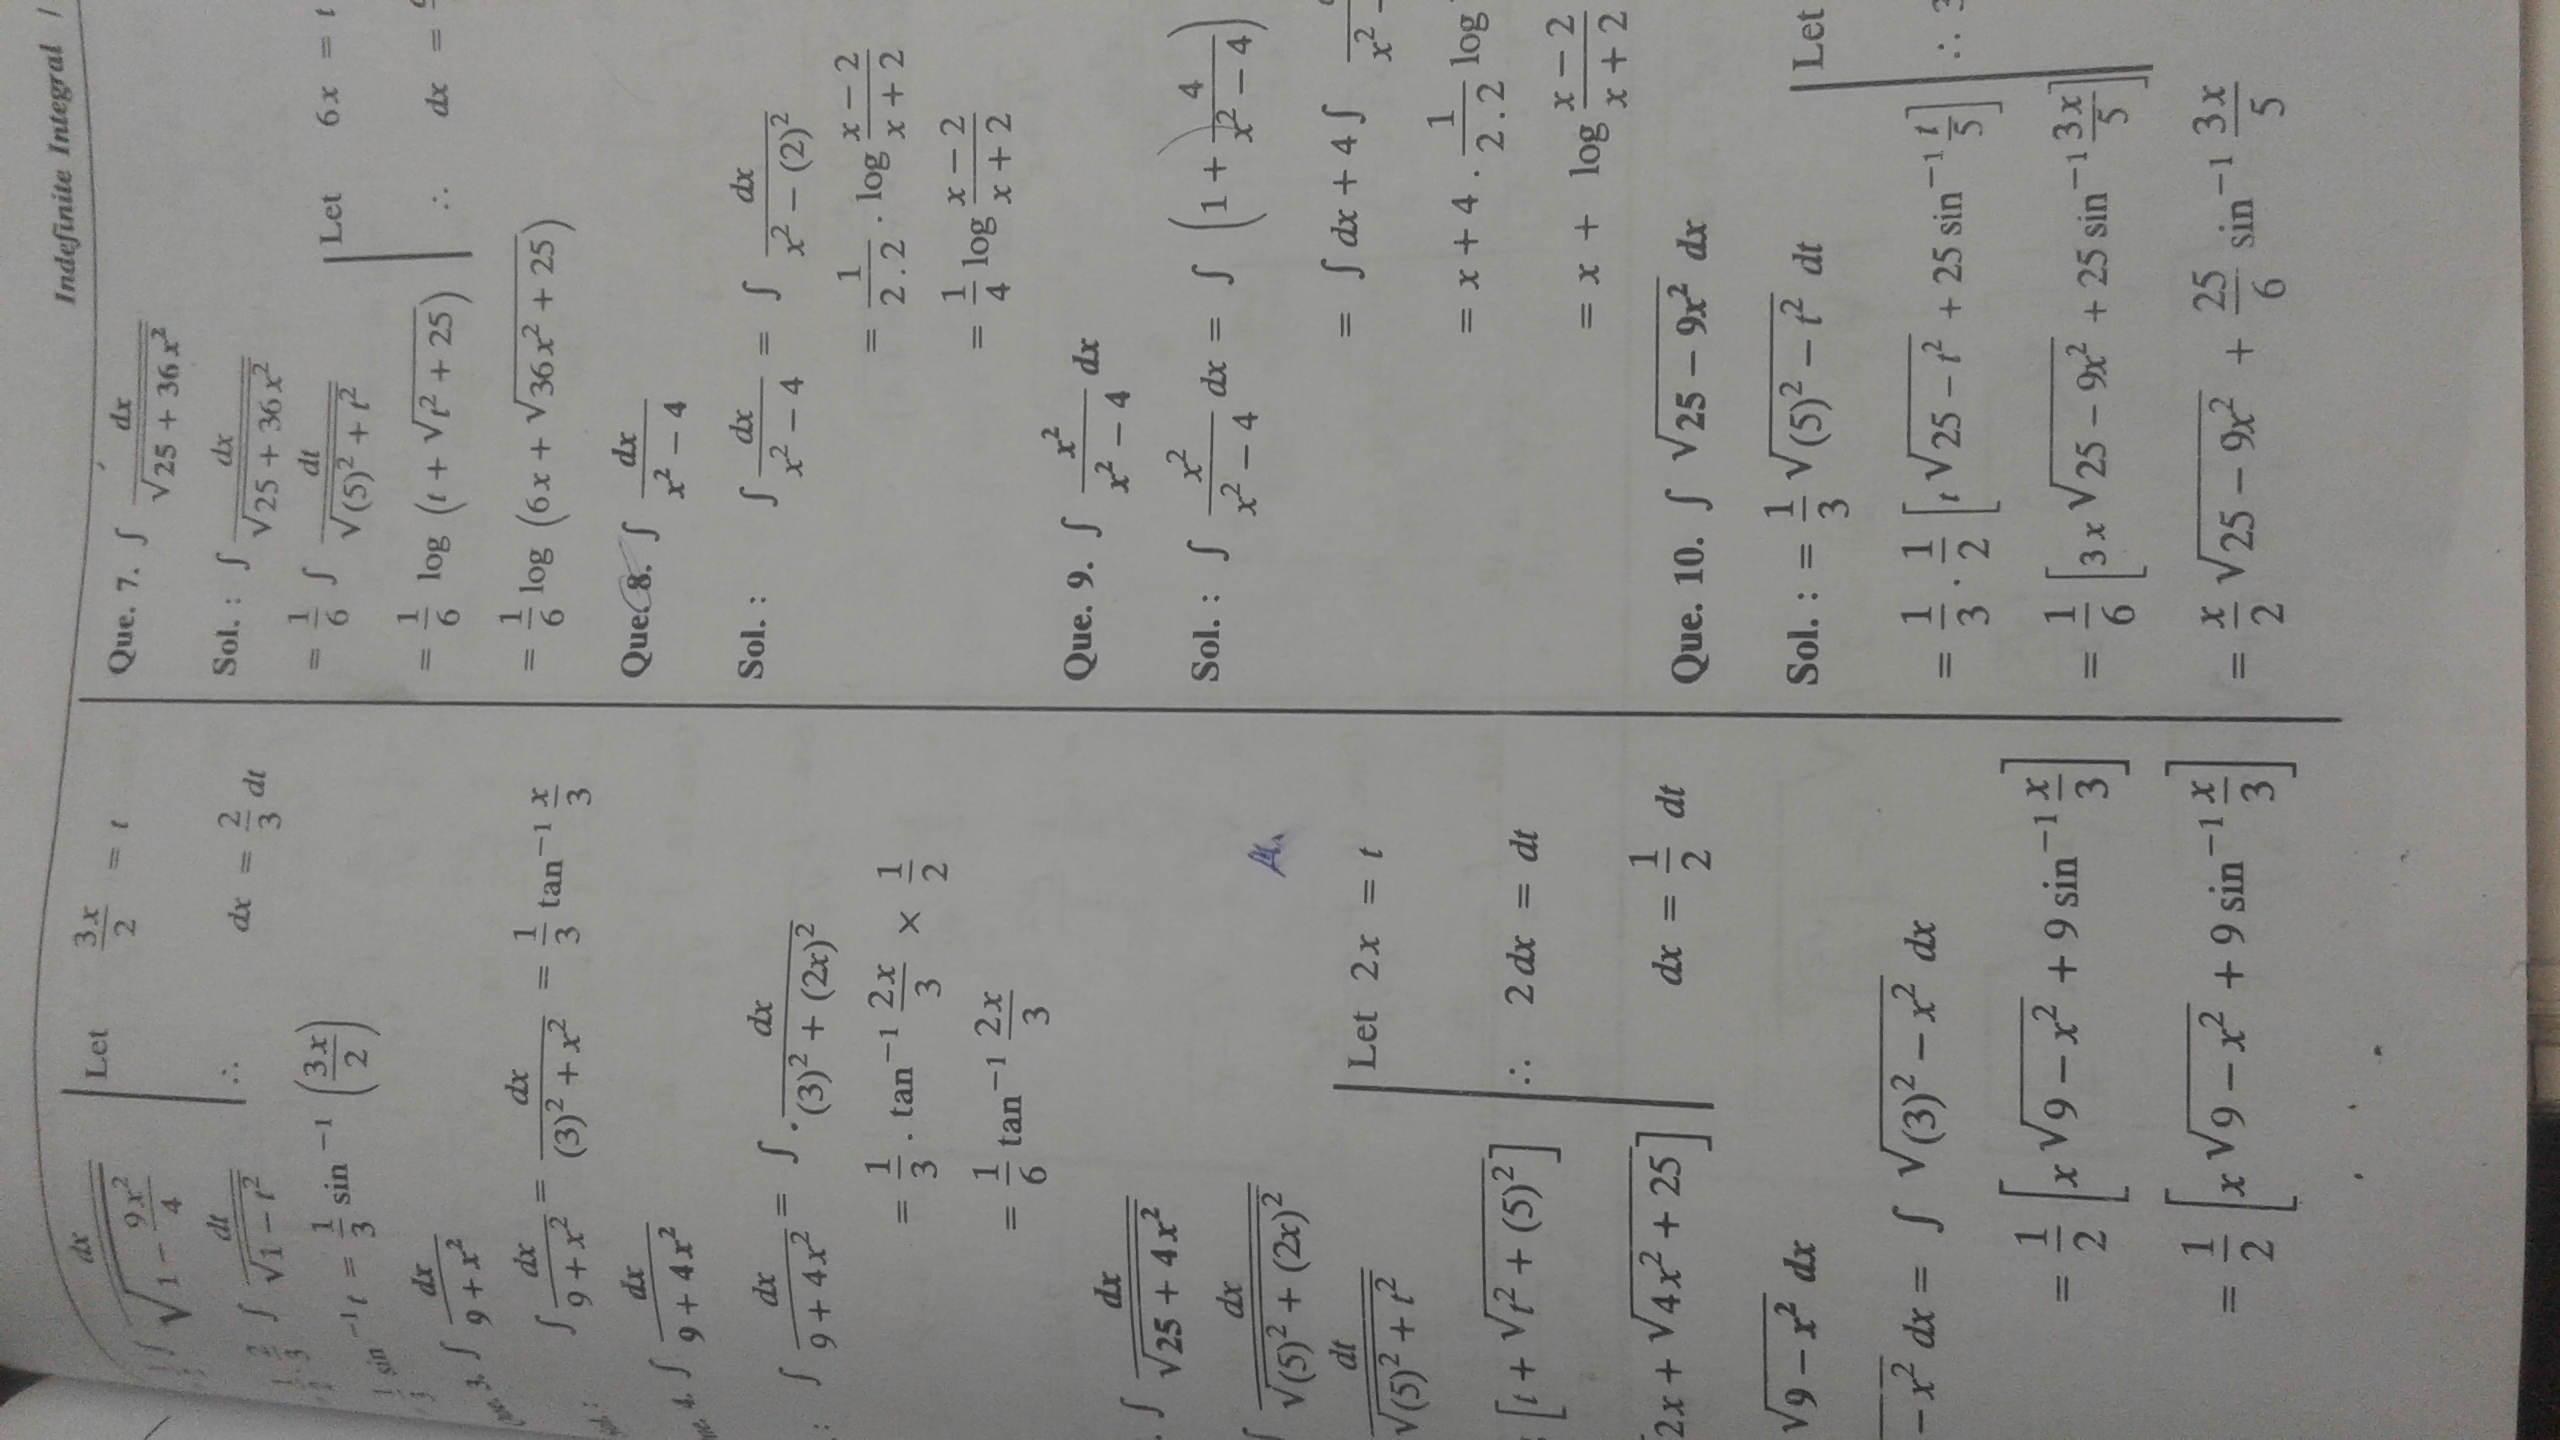 Indefinite Integral /
dx / √(1 − 9x²/4) | Let 3x/2 = t
2/3 ∫ dt/√(1 − t²) | ∴ dx = 2/3 dt
1/3 sin⁻¹ t = 1/3 sin⁻¹ (3x/2)
3. ∫ dx/(9 + x²)
∫ dx/(9 + x²) = dx/((3)² + x²) = 1/3 tan⁻¹ x/3
4. ∫ dx/(9 + 4x²)
: ∫ dx/(9 + 4x²) = ∫ dx/((3)² + (2x)²)
= 1/3 . tan⁻¹ 2x/3 × 1/2
= 1/6 tan⁻¹ 2x/3
. ∫ dx/√(25 + 4x²)
∫ dx/√((5)² + (2x)²)
dt/√((5)² + t²) | Let 2x = t
[t + √(t² + (5)²)] | ∴ 2dx = dt
2x + √(4x² + 25)] | dx = 1/2 dt
√(9 − x²) dx
− x² dx = ∫ √((3)² − x²) dx
= 1/2 [x √(9 − x²) + 9 sin⁻¹ x/3]
= 1/2 [x √(9 − x²) + 9 sin⁻¹ x/3]
Que. 7. ∫ dx/√(25 + 36x²)
Sol. : ∫ dx/√(25 + 36x²)
= 1/6 ∫ dt/√((5)² + t²) | Let 6x = t
= 1/6 log (t + √(t² + 25)) | ∴ dx =
= 1/6 log (6x + √(36x² + 25))
Que. 8. ∫ dx/(x² − 4)
Sol. : ∫ dx/(x² − 4) = ∫ dx/(x² − (2)²)
= 1/(2 . 2) . log (x − 2)/(x + 2)
= 1/4 log (x − 2)/(x + 2)
Que. 9. ∫ x²/(x² − 4) dx
Sol. : ∫ x²/(x² − 4) dx = ∫ (1 + 4/(x² − 4))
= ∫ dx + 4 ∫ x² −
= x + 4 . 1/(2 . 2) log
= x + log (x − 2)/(x + 2)
Que. 10. ∫ √(25 − 9x²) dx
Sol. : = 1/3 √((5)² − t²) dt | Let
= 1/3 . 1/2 [t √(25 − t²) + 25 sin⁻¹ t/5] | ∴ 3
= 1/6 [3x √(25 − 9x²) + 25 sin⁻¹ 3x/5]
= x/2 √(25 − 9x²) + 25/6 sin⁻¹ 3x/5